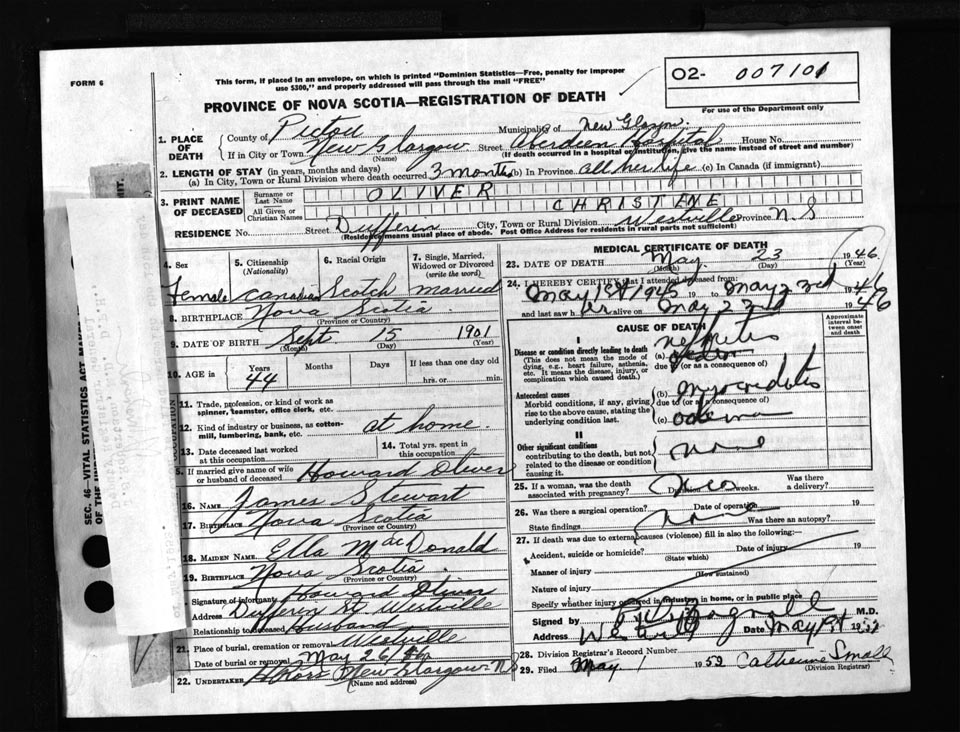 FORM 6
This form, if placed in an envelope, on which is printed "Dominion Statistics—Free, penalty for improper
use $300," and properly addressed will pass through the mail "FREE"
02- 007101
For use of the Department only
PROVINCE OF NOVA SCOTIA—REGISTRATION OF DEATH
1. PLACE OF DEATH
County of Pictou Municipality of New Glasgow
If in City or Town New Glasgow (Name) Street Aberdeen Hospital House No.
(If death occurred in a hospital or institution, give the name instead of street and number)
2. LENGTH OF STAY (in years, months and days)
(a) In City, Town or Rural Division where death occurred 3 months (b) In Province all her life (c) In Canada (if immigrant)
3. PRINT NAME OF DECEASED
Surname or Last Name OLIVER
All Given or Christian Names CHRISTENE
RESIDENCE No. Street Dufferin City, Town or Rural Division Westville Province N.S
(Residence means usual place of abode. Post Office Address for residents in rural parts not sufficient)
4. Sex Female
5. Citizenship (Nationality) Canadian
6. Racial Origin Scotch
7. Single, Married, Widowed or Divorced (write the word) married
8. BIRTHPLACE Nova Scotia
(Province or Country)
9. DATE OF BIRTH Sept. 15 1901
(Month) (Day) (Year)
10. AGE in Years 44 Months Days If less than one day old hrs. or min.
11. Trade, profession or kind of work as spinner, teamster, office clerk, etc.
12. Kind of industry or business, as cotton-mill, lumbering, bank, etc. at home.
13. Date deceased last worked at this occupation
14. Total yrs. spent in this occupation
5. If married give name of wife or husband of deceased Howard Oliver
16. Name James Stewart
17. Birthplace Nova Scotia
(Province or Country)
18. Maiden Name Ella MacDonald
19. Birthplace Nova Scotia
(Province or Country)
Signature of informant Howard Oliver
Address Dufferin St. Westville
Relationship to deceased Husband
21. Place of burial, cremation or removal Westville
Date of burial or removal May 26/46
22. Undertaker New Glasgow N.S
(Name and address)
MEDICAL CERTIFICATE OF DEATH
23. DATE OF DEATH May 23 1946
(Month) (Day) (Year)
24. I HEREBY CERTIFY that I attended deceased from:
May 1st 1945 19 to May 23rd 1946
and last saw her alive on May 23rd 1946
CAUSE OF DEATH
Approximate interval between onset and death
I
Disease or condition directly leading to death
(This does not mean the mode of dying, e.g., heart failure, asthenia, etc. It means the disease, injury, or complication which caused death.)
(a)
due to (or as a consequence of)
Antecedent causes
Morbid conditions, if any, giving rise to the above cause, stating the underlying condition last.
(b)
due to (or as a consequence of)
(c)
II
Other significant conditions
contributing to the death, but not related to the disease or condition causing it.
none
25. If a woman, was the death associated with pregnancy? weeks. Was there a delivery?
26. Was there a surgical operation? Date of operation 19
State findings none Was there an autopsy?
27. If death was due to external causes (violence) fill in also the following:
Accident, suicide or homicide? (State which) Date of injury 19
Manner of injury (How sustained)
Nature of injury
Specify whether injury occurred in industry, in home, or in public place
Signed by M.D.
Address Westville Date May 1st 1952
28. Division Registrar's Record Number
29. Filed May 1 1952 Catherine Small
(Division Registrar)
SEC. 46 VITAL STATISTICS ACT